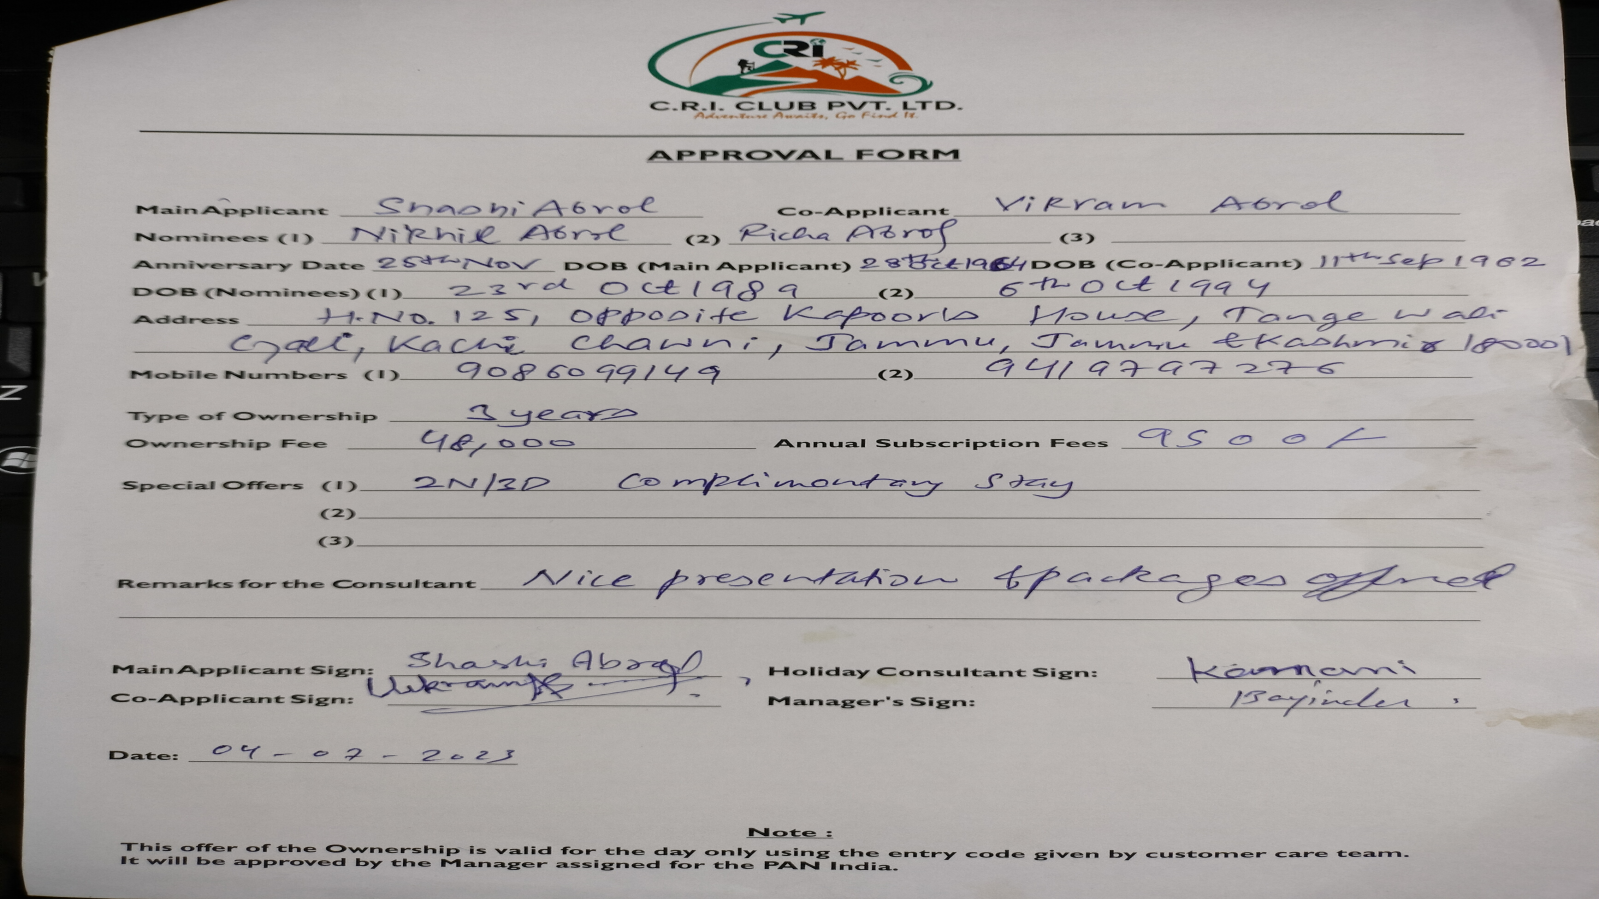 CRi
C.R.I. CLUB PVT. LTD.
Adventure Awaits, Go Find It.
APPROVAL FORM
Main Applicant Shashi Abrol Co-Applicant Vikram Abrol
Nominees (1) Nikhil Abrol (2) Richa Abrol (3)
Anniversary Date 25th Nov DOB (Main Applicant) 28th Oct 1964 DOB (Co-Applicant) 11th Sep 1962
DOB (Nominees) (1) 23rd Oct 1989 (2) 6th Oct 1994
Address H.No. 125, Opposite Kapoor's House, Tange wali
Gali, Kachi Chawni, Jammu, Jammu & Kashmir 180001
Mobile Numbers (1) 9086099149 (2) 9419797276
Type of Ownership 3 years
Ownership Fee 48,000 Annual Subscription Fees 9500/-
Special Offers (1) 2N/3D Complimentary Stay
(2)
(3)
Remarks for the Consultant Nice presentation & packages offered
Main Applicant Sign: Shashi Abrol Holiday Consultant Sign:
Co-Applicant Sign: Vikram Manager's Sign:
Date: 04-07-2023
Note :
This offer of the Ownership is valid for the day only using the entry code given by customer care team.
It will be approved by the Manager assigned for the PAN India.